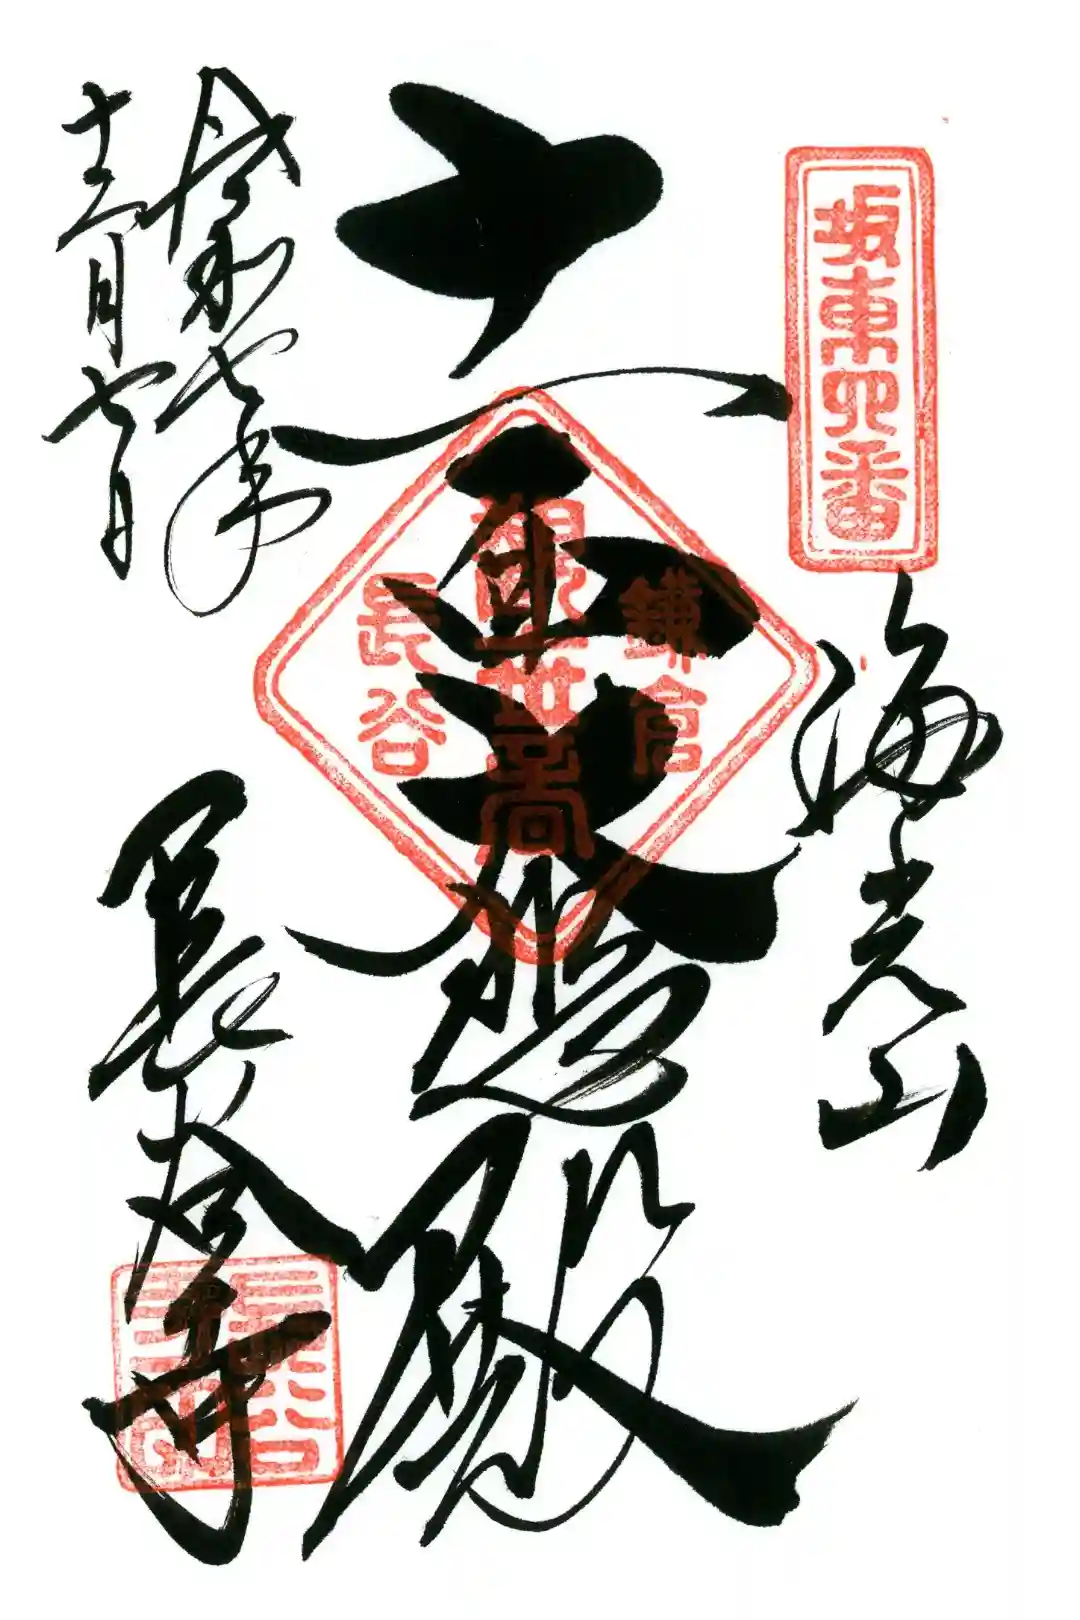 坂東四番
海光山
十一面大悲殿
鎌倉
観世音
長谷
長谷寺
令和七年
十二月七日